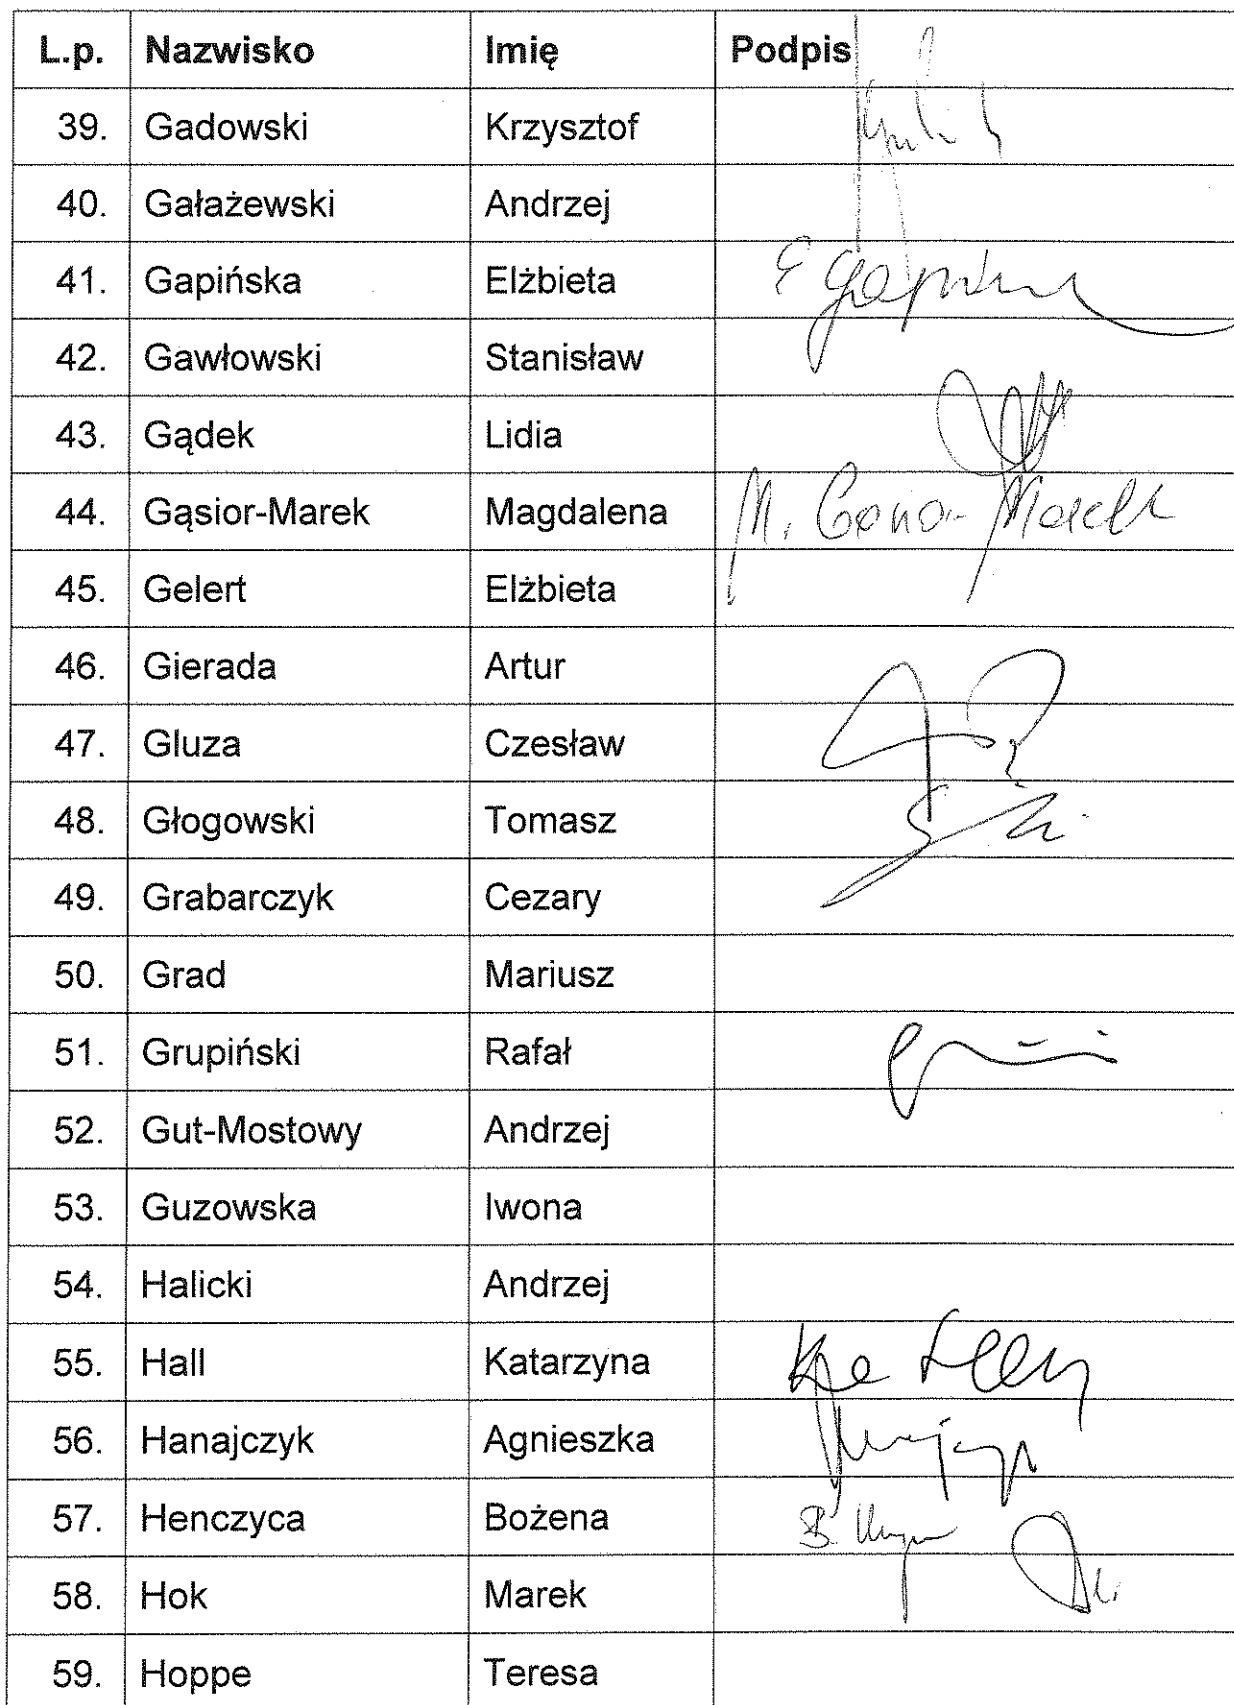 L.p. Nazwisko Imię Podpis
39. Gadowski Krzysztof
40. Gałażewski Andrzej
41. Gapińska Elżbieta
42. Gawłowski Stanisław
43. Gądek Lidia
44. Gąsior-Marek Magdalena M.
45. Gelert Elżbieta
46. Gierada Artur
47. Gluza Czesław
48. Głogowski Tomasz
49. Grabarczyk Cezary
50. Grad Mariusz
51. Grupiński Rafał
52. Gut-Mostowy Andrzej
53. Guzowska Iwona
54. Halicki Andrzej
55. Hall Katarzyna
56. Hanajczyk Agnieszka
57. Henczyca Bożena B.
58. Hok Marek
59. Hoppe Teresa